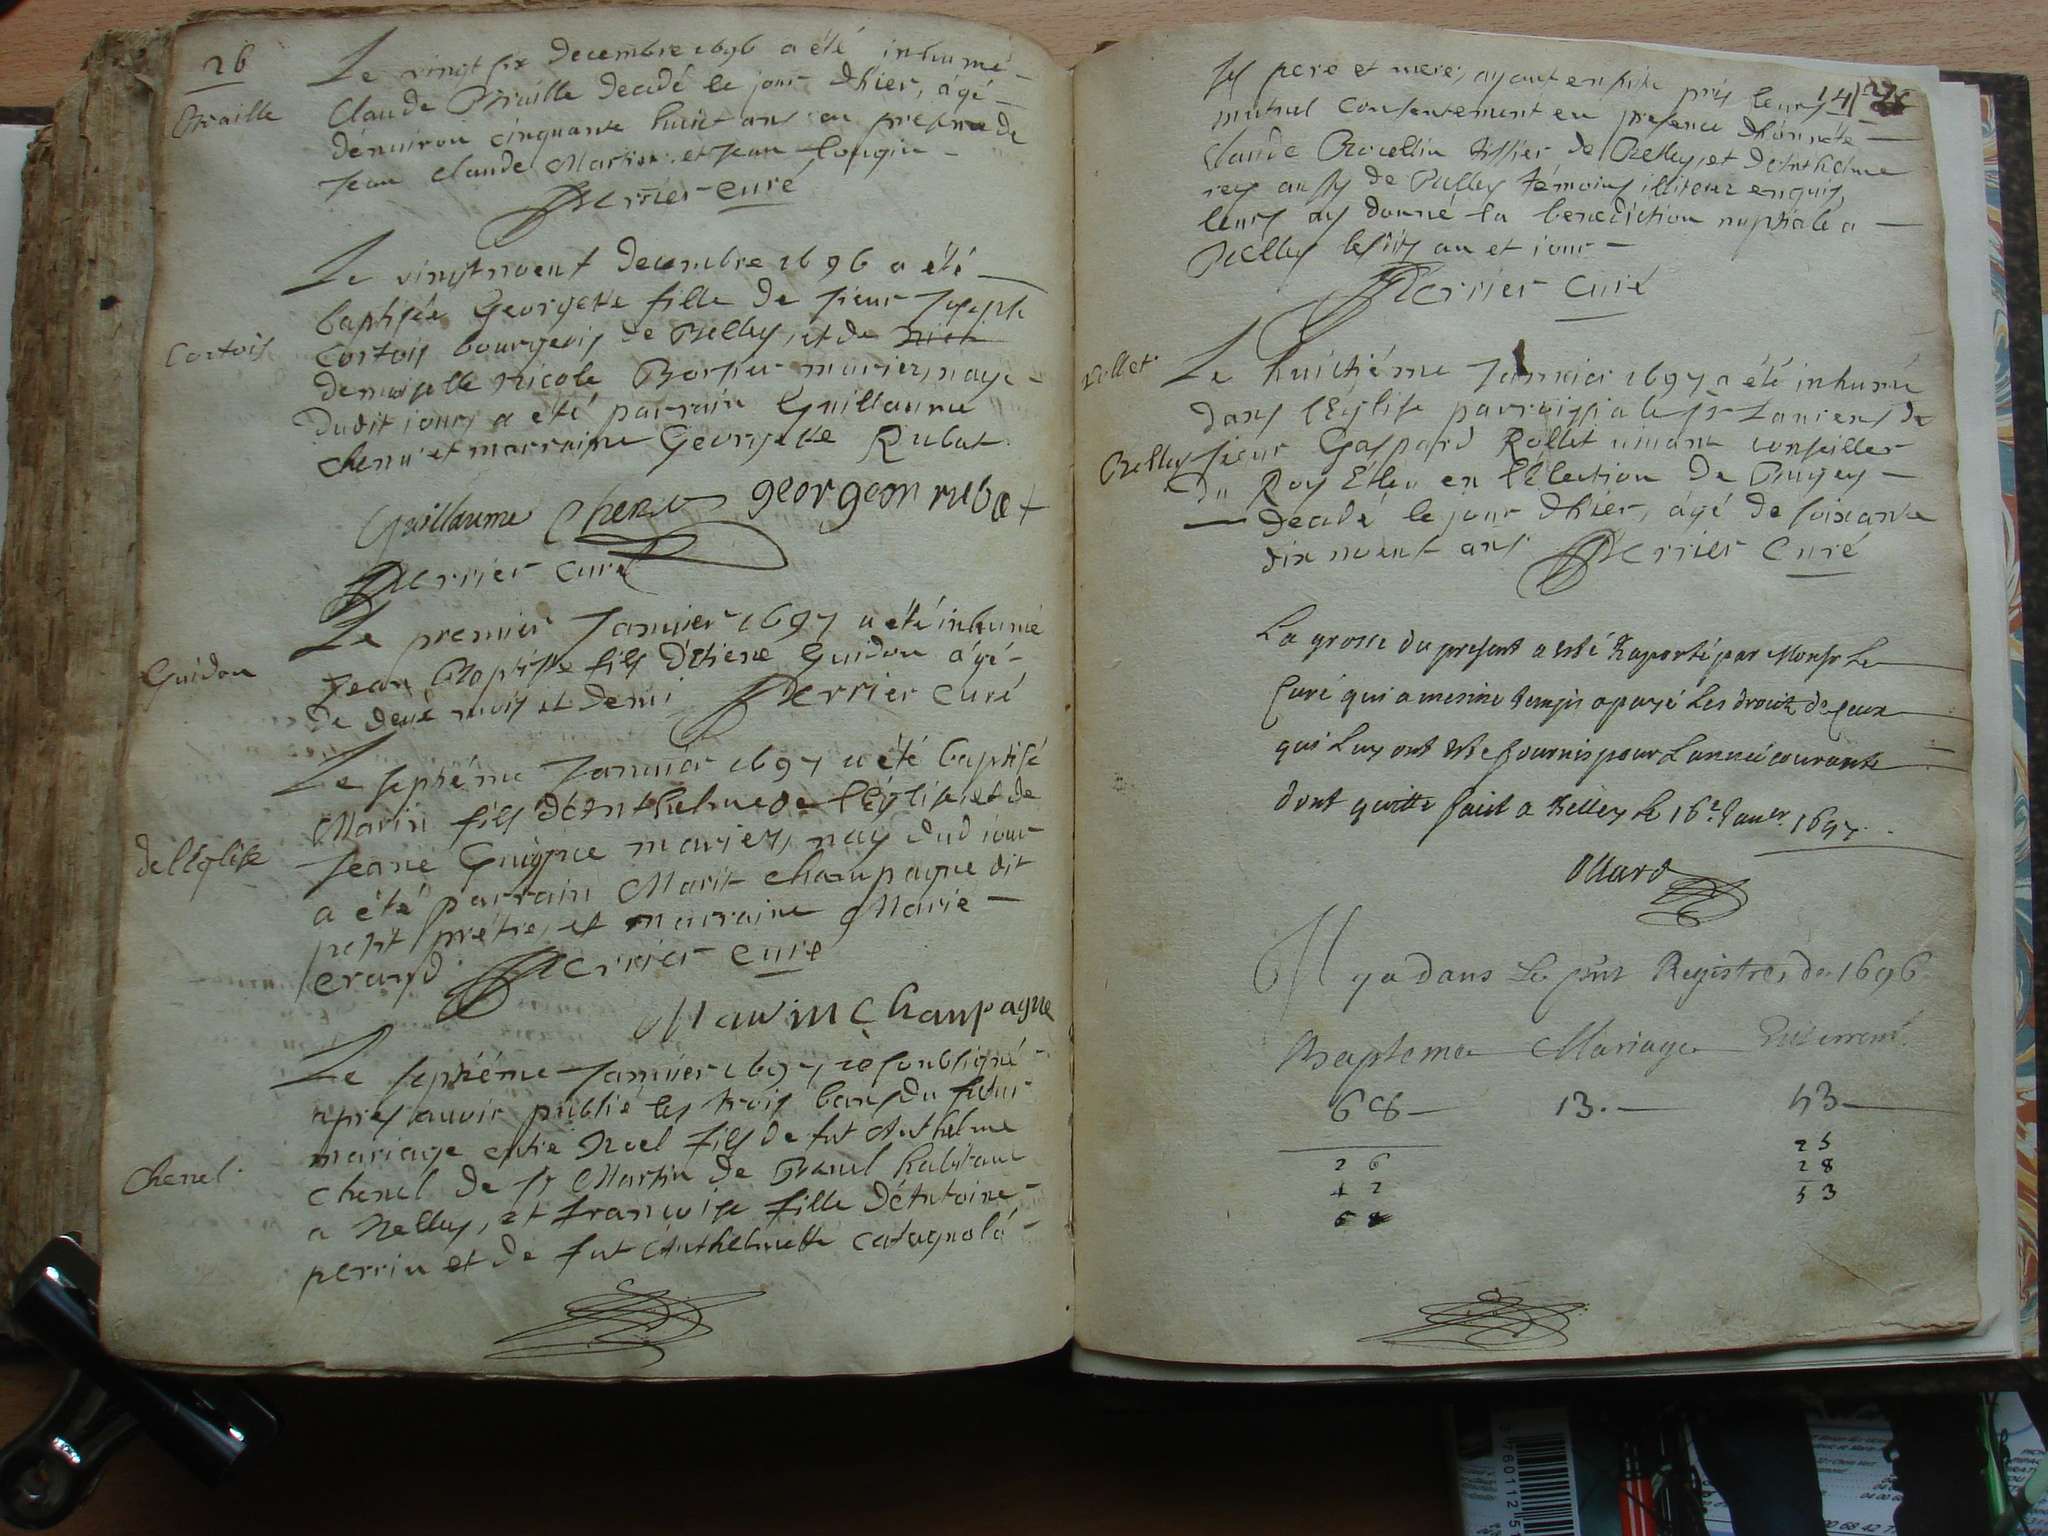 26
Le vingt six decembre 1696 a été inhumé
Braille
Claude Braille decedé le jour d'hier, âgé
d'enuiron cinquante huict ans en presence de
Jean Claude Martin et Jean Longin
Perrier curé
Le vingtneuf decembre 1696 a été
baptisée Georgette fille de sieur Joseph
Cortois
Cortois bourgeois de Belley, et de
demoiselle Nicole Borsier mariez, naye
dudit jour, a été parrain Guillaume
Chenu et marraine Georgette Rubat
Guillaume Chenu georgeon rubat
Perrier curé
Le premier Januier 1697 a été inhumé
Guidon
Jean Baptiste fils d'Etiene Guidon âgé
de deux mois et demi Perrier curé
Le septiéme Januier 1697 a été baptisé
Marin fils d'Anthelme de l'Eglise et de
de l'Eglise
Jeane Guigue mariez, nay dud jour
a été parrain Marin Champagne dit
petit prétre, et marraine Marie
Perrier curé
Marin Champagne
Le septiéme Januier 1697 je soubsigné
apres auoir publié les trois bans du futur
mariage entre Noel fils de fut Anthelme
Chenel
Chenel de St Martin de Bauel habitant
a Belley, et francoise fille d'Antoine
perrin et de fut Anthelmette Catagnola
ses pere et mere, ayant ensuite pris leurs
14
mutuel consentement en presence d'honnéte
Claude Rocellin tissier de Belley, et d'Anthelme
rey aussy de Belley témoins illiterez enquis,
leurs ay donné la benediction nuptiale a
Belley les an et jour
Perrier curé
Rollet
Le huictiéme Januier 1697 a été inhumé
dans l'Eglise parroissiale St Laurens de
Belley sieur Gaspard Rollet uiuant conseiller
du Roy Esleu en l'Election de Bugey
decedé le jour d'hier, âgé de soixante
dix neuf ans Perrier curé
La grosse du present a esté Raporté par Monsr Le
Curé qui a mesme temps a payé Les droits de ceux
qui Luy ont esté fournis pour L'année courante
dont quitte faict a Belley Le 16e Janer 1697
Ollard
Il y a dans Le pnt Registre de 1696
Bapteme Mariage Enterremt
68 13. 53
26 25
42 28
68 53